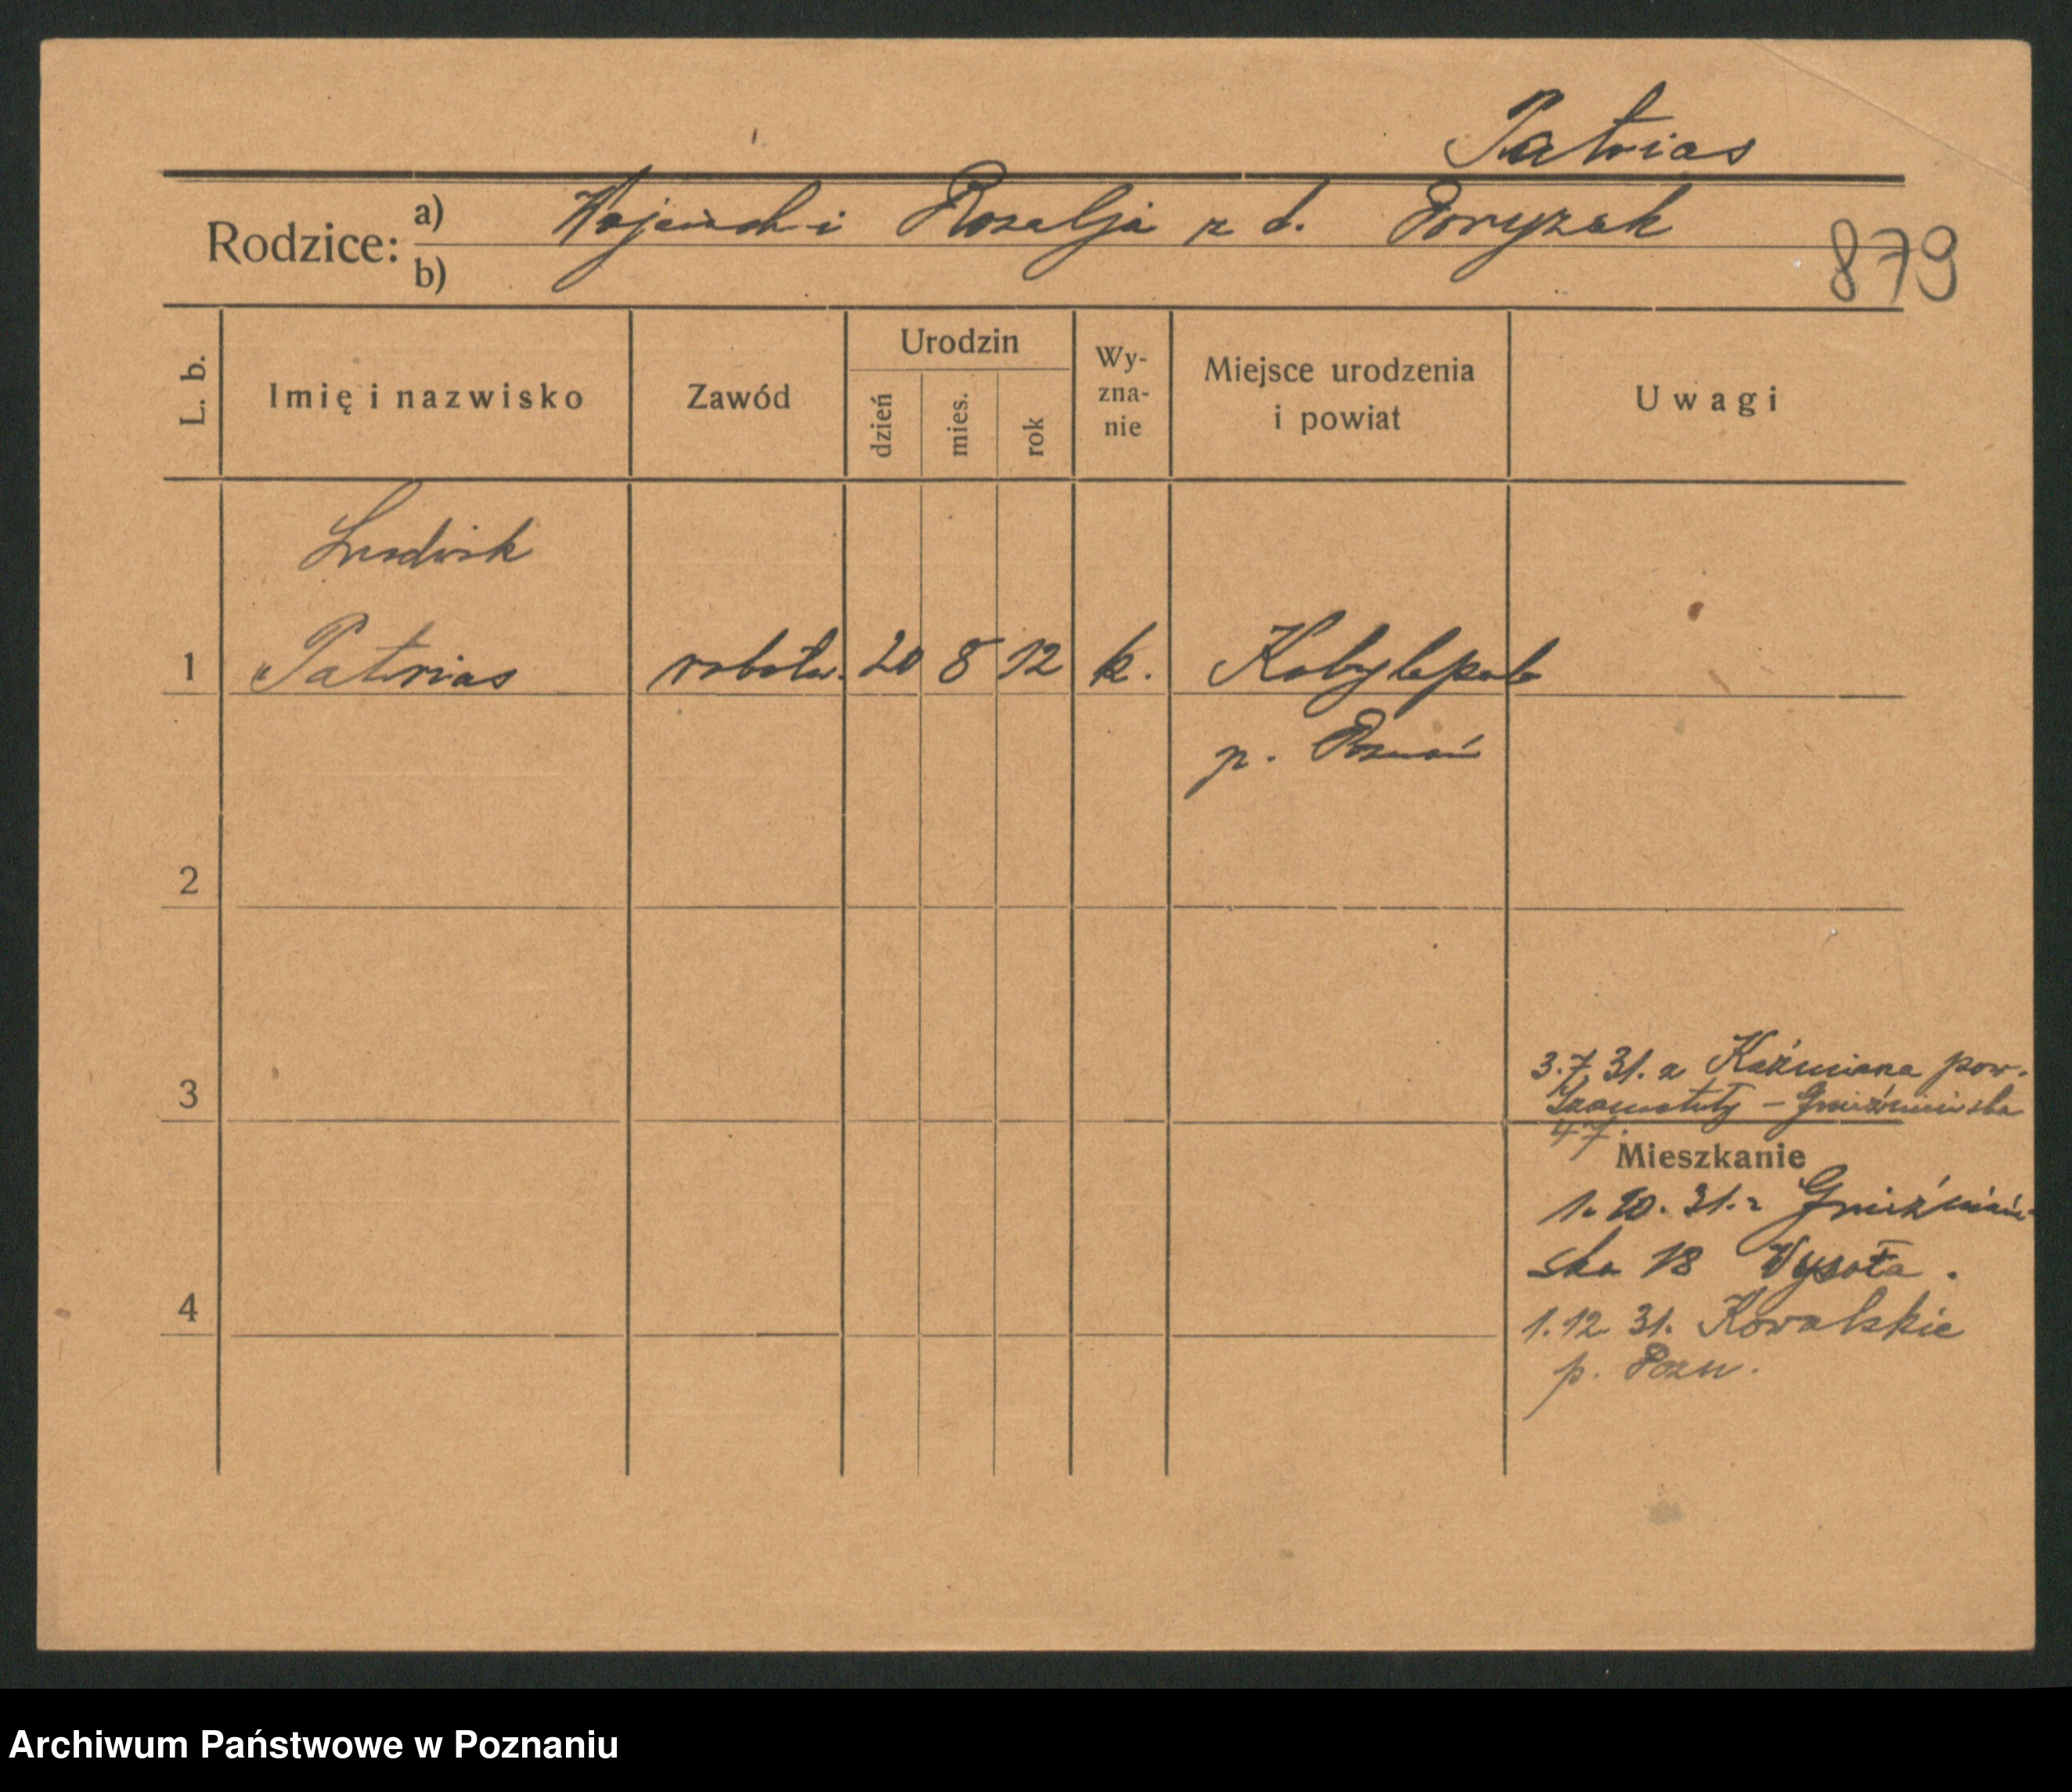 Patrias
Rodzice: a) Wojciech i Rozalja z d. Poryzek
b)
879
L. b.
Imię i nazwisko
Zawód
Urodzin
dzień
mies.
rok
Wy-
zna-
nie
Miejsce urodzenia
i powiat
Uwagi
Ludwik
1 Patrias robotn. 20 8 12 k. Kobylepole
p. Poznań
2
3
3.7.31. z Kaźmierza pow.
Szamotuły – Gnieźnieńska
47.
Mieszkanie
1.10.31. Gnieźnień-
ska 18 Wysota.
4
1.12 31. Kowalskie
p. Pozn.
Archiwum Państwowe w Poznaniu